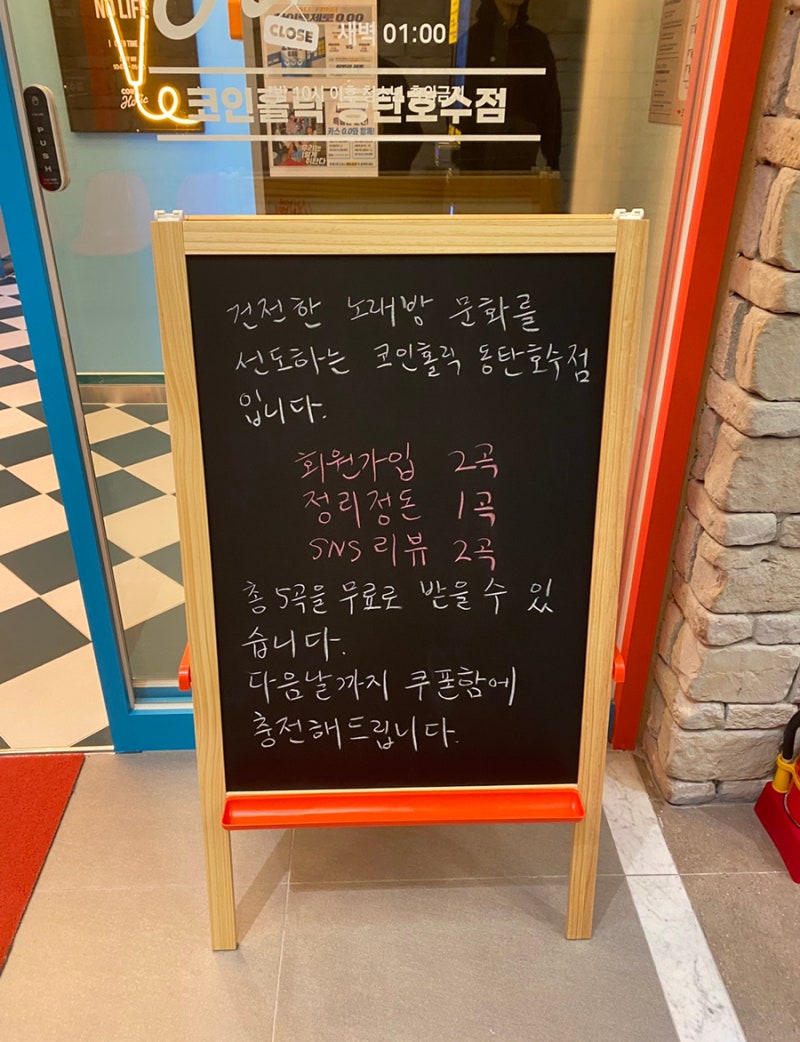 NO LIFE
CLOSE
새벽 01:00
밤 10시 이후 청소년 출입금지
코인홀릭 동탄호수점
PUSH
건전한 노래방 문화를
선도하는 코인홀릭 동탄호수점
입니다.
회원가입 2곡
정리정돈 1곡
SNS 리뷰 2곡
총 5곡을 무료로 받을 수 있
습니다.
다음날까지 쿠폰함에
충전해드립니다.